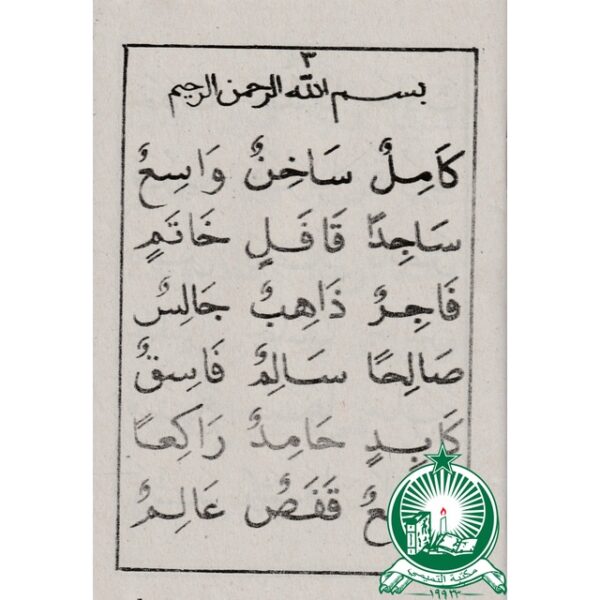 ٣
بسم الله الرحمن الرحيم
كَامِلٌ سَاخِنٌ وَاسِعٌ
سَاجِدًا قَافَلٍ خَاتَمٍ
فَاجِرٌ ذَاهِبٌ جَالِسٌ
صَالِحًا سَالِمٌ فَاسِقٌ
كَابِدٍ حَامِدٌ رَاكِعًا
قَفَصٌ عَالِمٌ
مكتبة التميمي
١٩٩٣